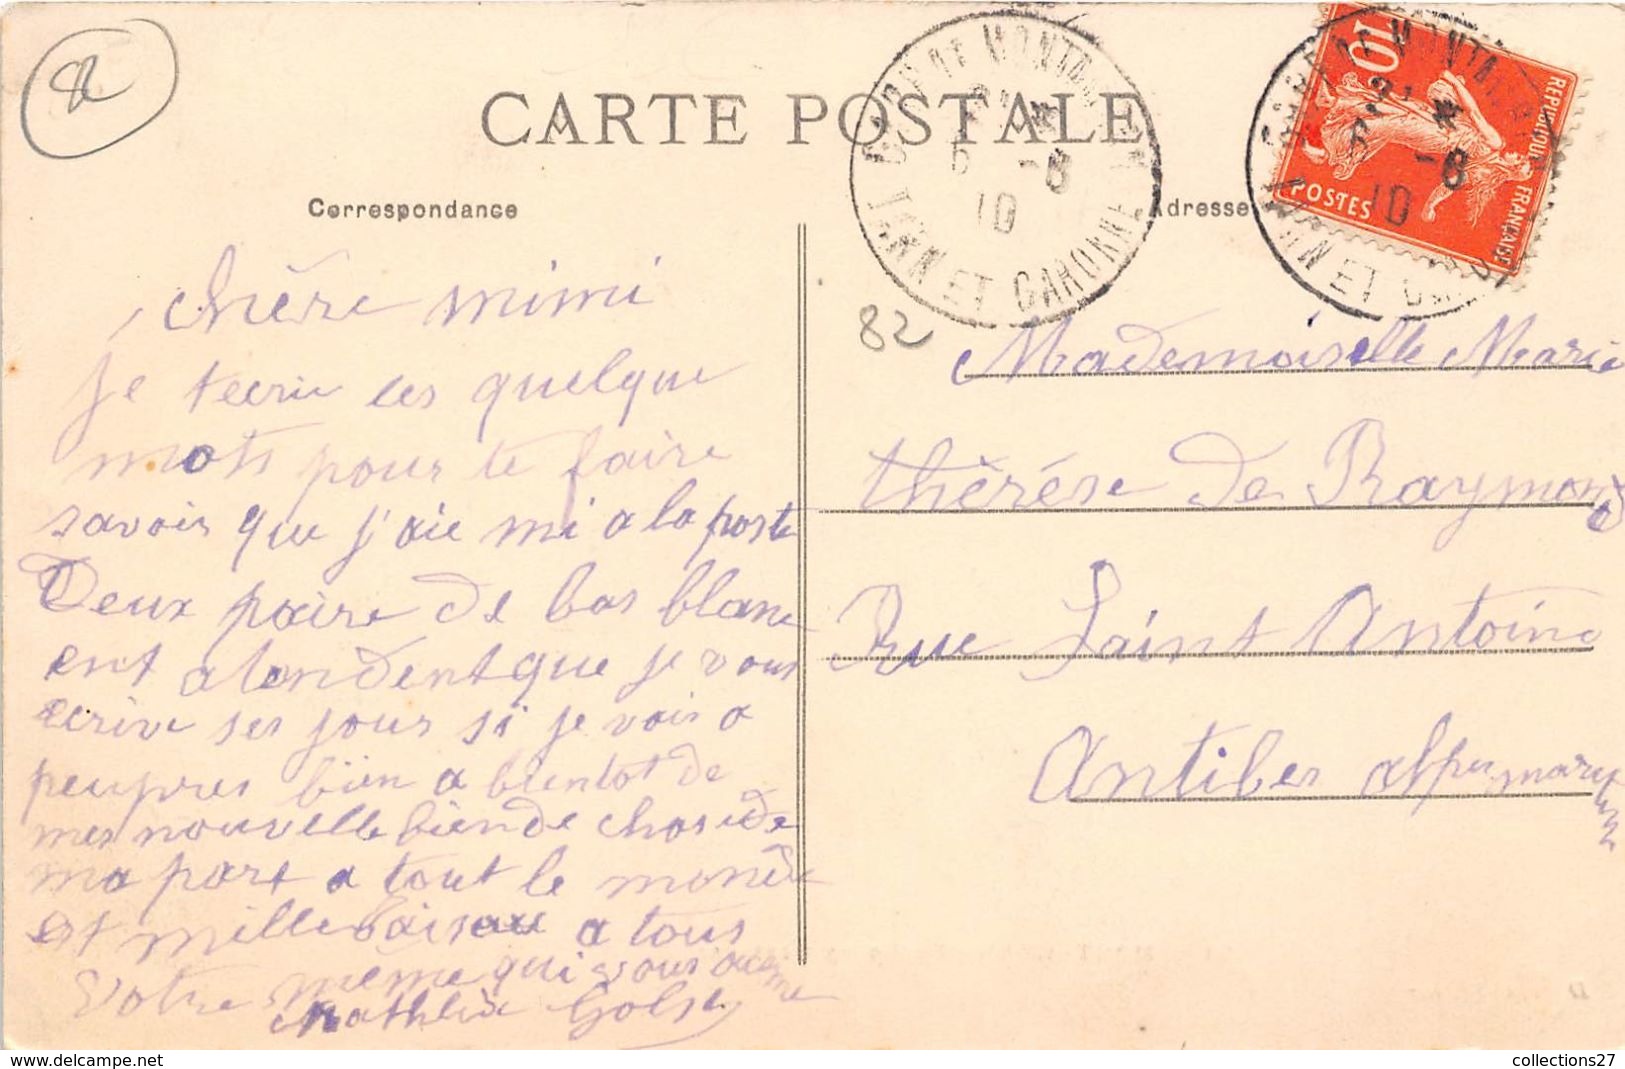 82
CARTE POSTALE
GARE DE MONTAUBAN
5 -8
10
TARN ET GARONNE
10
REPUBLIQUE FRANÇAISE
POSTES
Correspondance
Adresse
82
chère mimi
je tecrie ces quelque
mots pour te faire
savoir que j'aie mi a la poste
Deux paire de bas blanc
ent atendent que je vous
ecrive ses jour si je vois a
peupres bien a bientot de
mes nouvelle bien de chose de
ma part a tout le monde
et mille baisau a tous
Votre mème qui vous aeme
Mademoiselle Marie
thèrése de Raymond
Rue Saint Antoine
Antibes alpes maritim
collections27